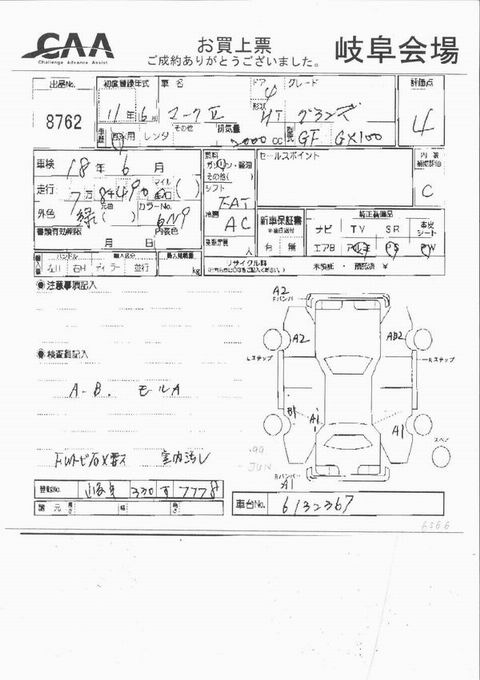 CAA
Challenge Advance Assist
お買上票
ご成約ありがとうございました。
岐阜会場
出品No.
8762
初度登録年式
11年6月
車名
マークⅡ
ドア
4
形状
HT
グレード
グランデ
評価点
4
車歴
自家用 レンタ
その他
排気量
2000cc
型式
GF GX100
車検
18年6月
走行
7万8千490
マイル
燃料
ガソリン・軽油
その他( )
シフト
FAT
冷房
AC
乗車定員
人
セールスポイント
内装
補助評価
C
外色
緑( )
元色
カラーNo.
6N9
書類有効期限
月 日
内装色
新車保証書
有 無
純正装備品
ナビ TV SR
革出シート
エアB アルミ PS PW
輸入車
ハンドル
左H 右H
輸入区分
ディーラー 並行
最大積載量
kg
リサイクル料
未預託・預託済
注意事項記入
検査員記入
A-B. モールA
室内汚レ
A2
Fバンパ
A2
AB2
Lステップ
Rステップ
B1
A1
A1
スペア
Rバンパー
A1
.99
JUN
登録No.
330 す 7778
諸元
長さ
幅
高さ
車台No.
6132367
6366